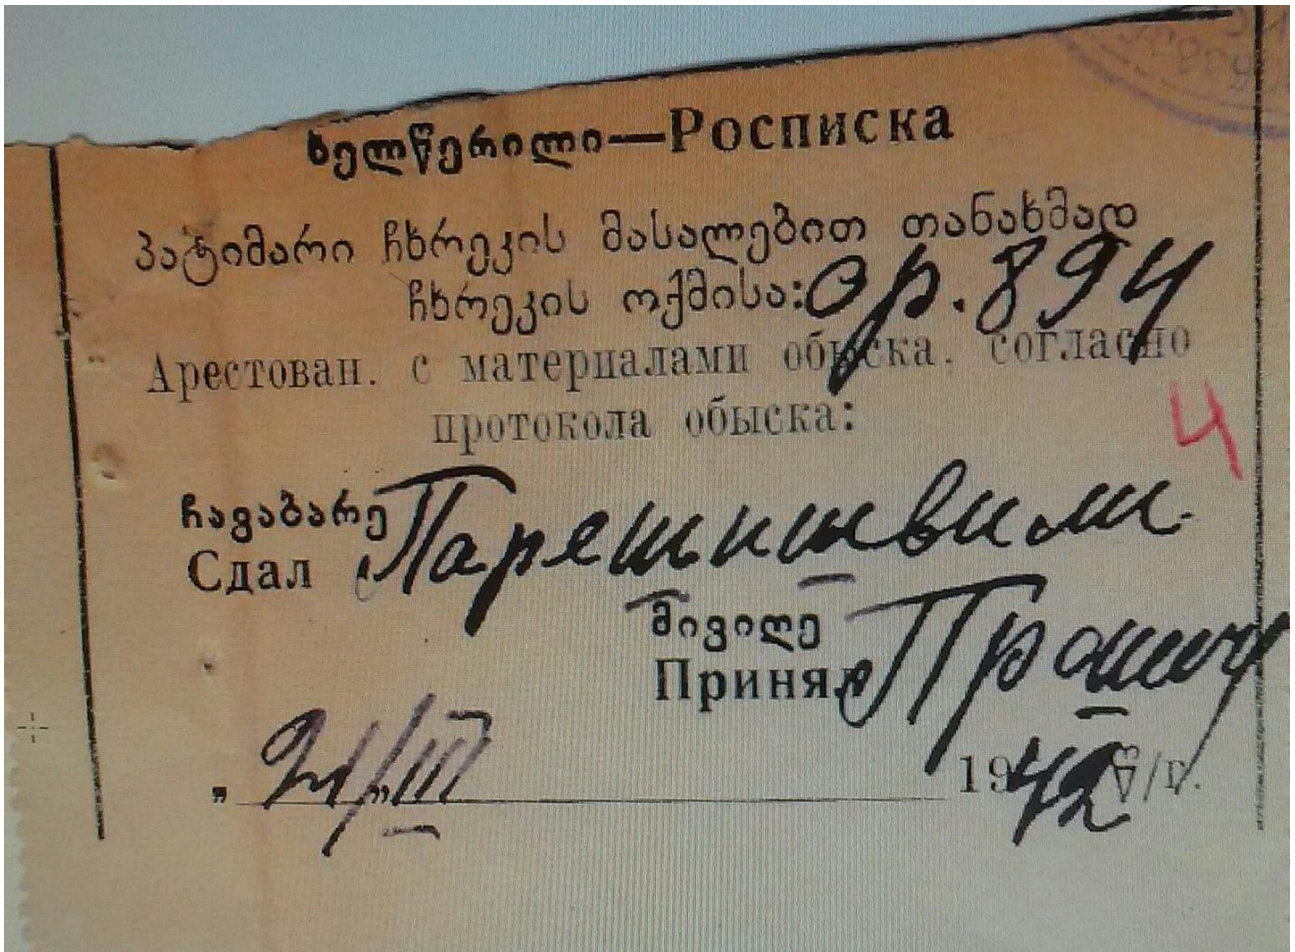 ხელწერილი—Росписка
პატიმარი ჩხრეკის მასალებით თანახმად
ჩხრეკის ოქმისა: ор. 894
Арестован. с материалами обыска, согласно
протокола обыска:
4
ჩავაბარე
Сдал Парешишвили
მივიღე
Принял
„ 21/„III 1942 წ/г.